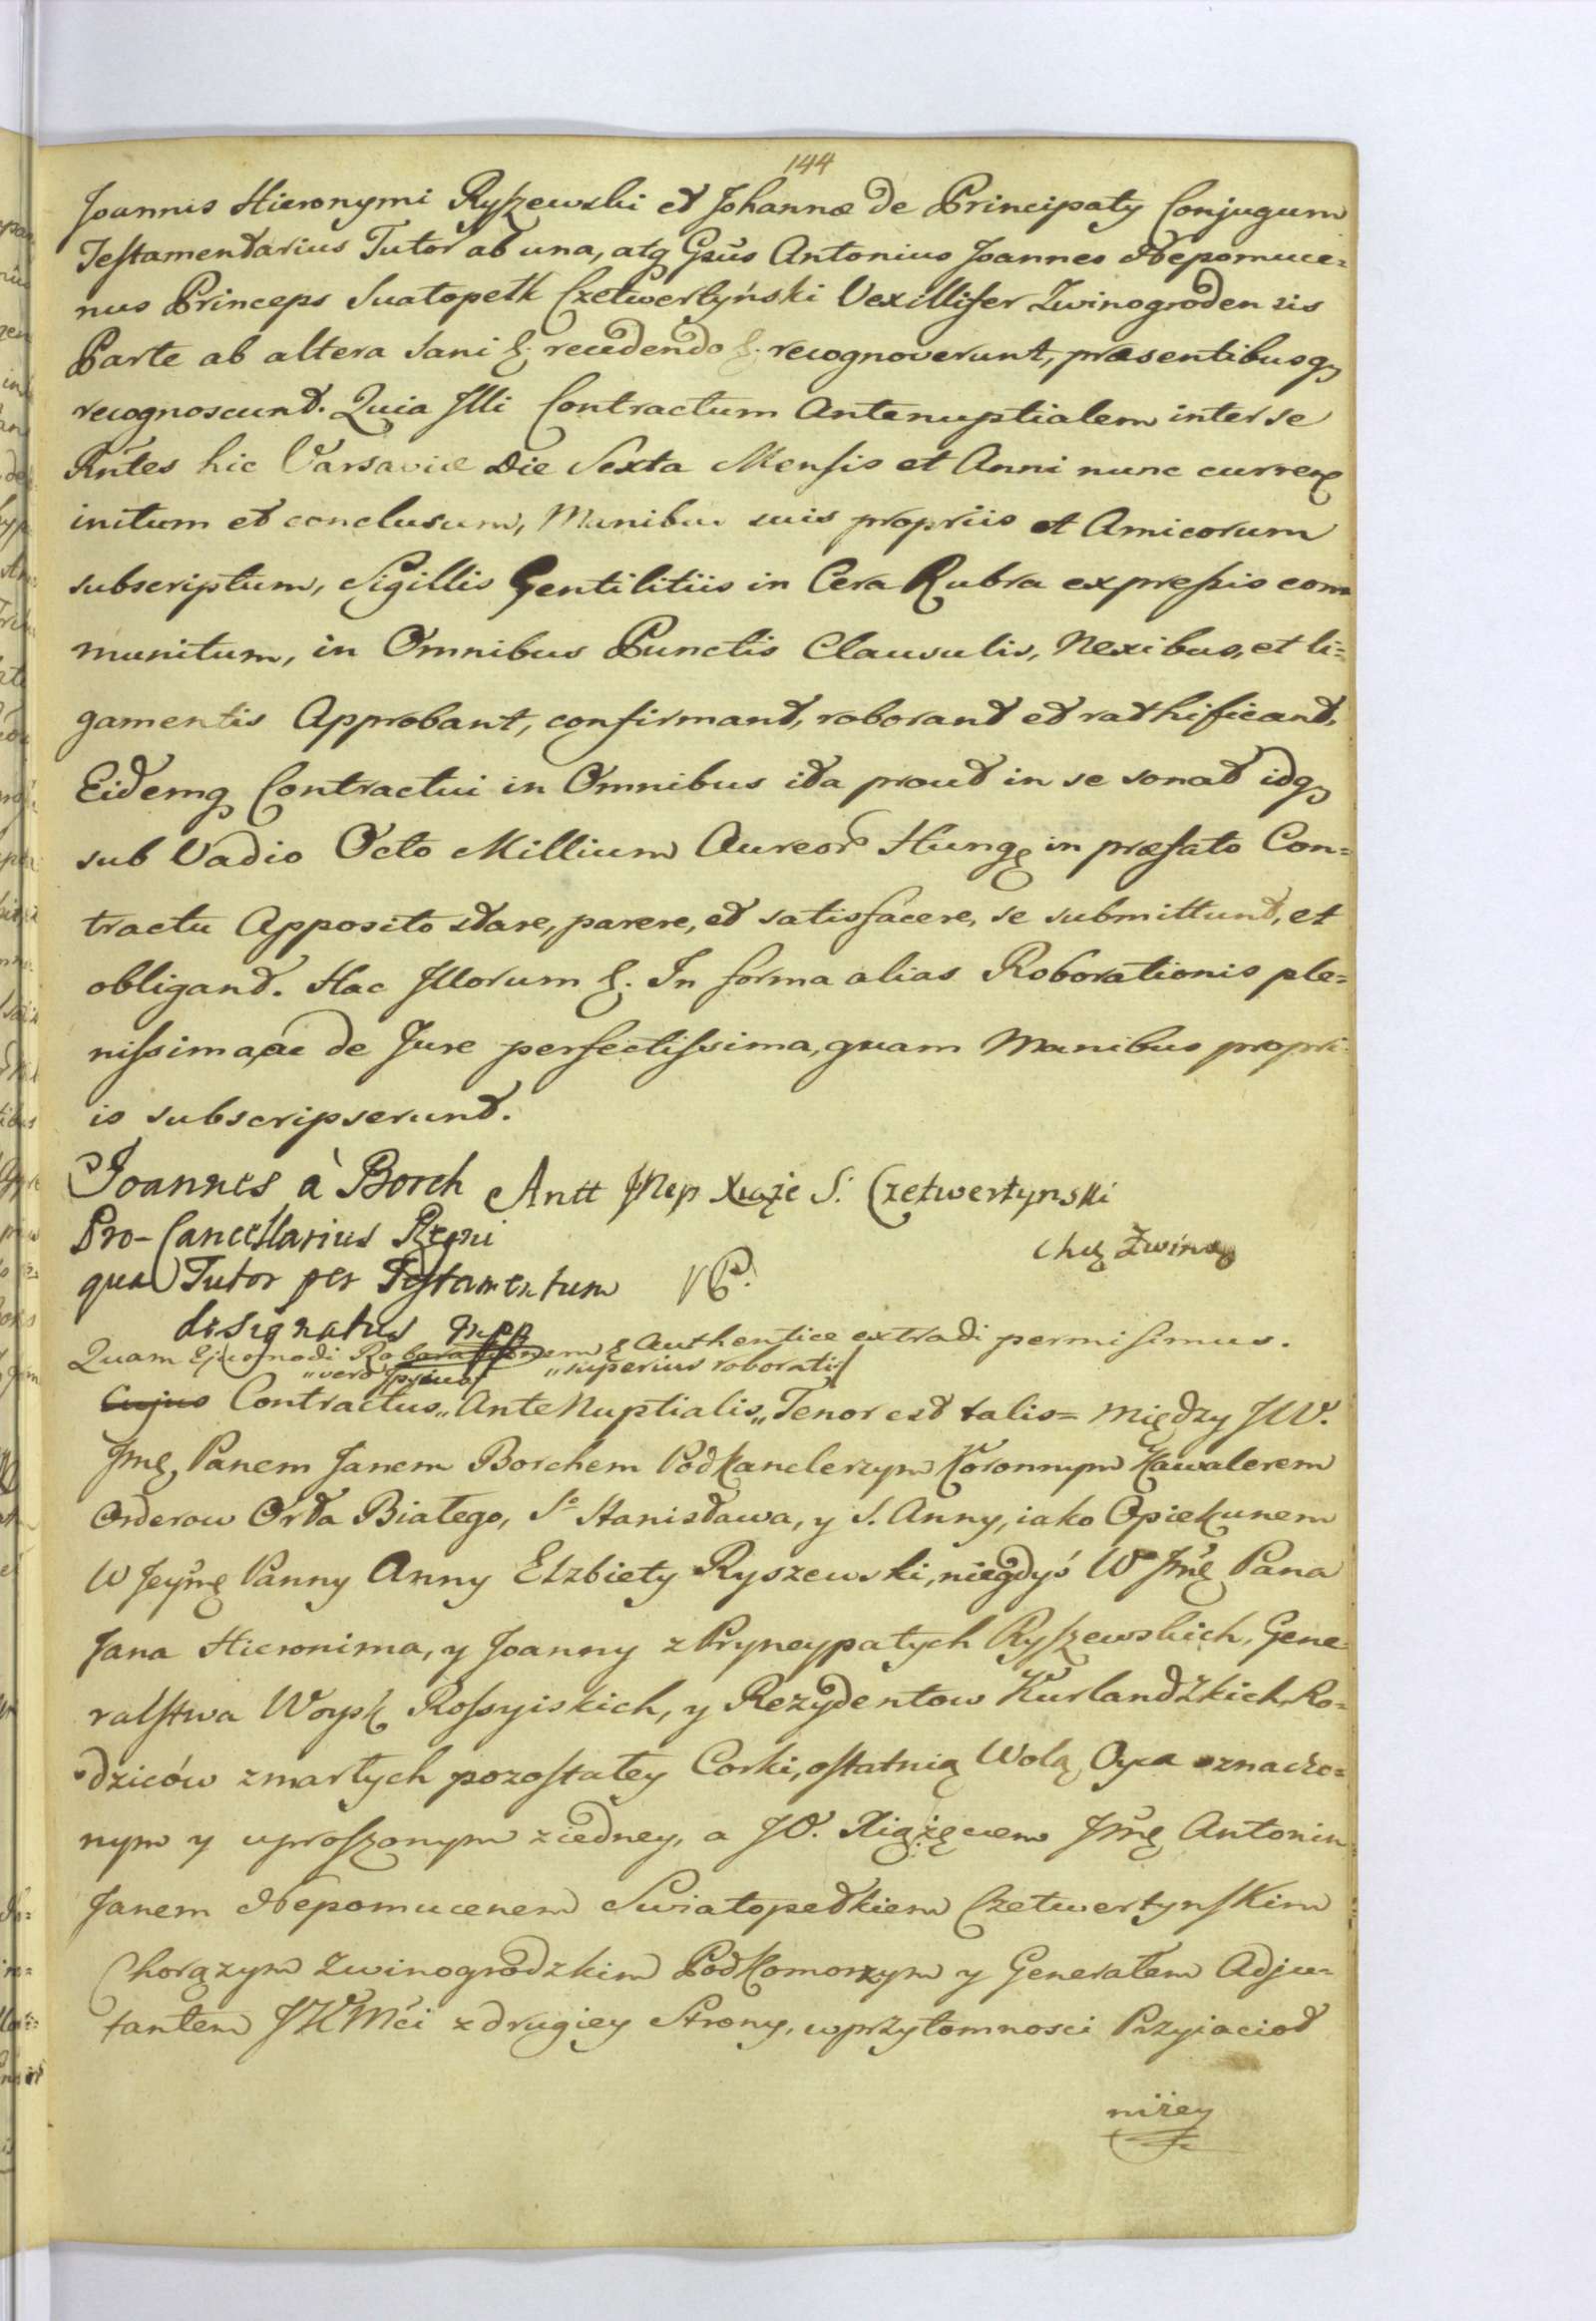 144
Joannis Hieronymi Ryszewski et Johannæ de Principaty Conjugum
Testamentarius Tutor ab una, atq Gsus Antonius Joannes Nepomuce=
nus Princeps Suatopelk Czetwertyński Vexillifer Zwinogroden sis
Parte ab altera Sani &. recedendo &. recognoverunt, præsentibusq
recognoscunt. Quia Illi Contractum Antenuptialem inter se
Rñtes hic Varsaviæ Die Sexta Mensis et Anni nunc curren
initum et conclusum, Manibus suis propriis et Amicorum
subscriptum, Sigillis Gentilitiis in Cera Rubra expressis com
munitum, in Omnibus Punctis Clausulis, Nexibus, et li=
gamentis Approbant, confirmant, roborant et rathificant,
Eidemq Contractui in Omnibus ita prout in se sonat idq
sub Vadio Octo Millium Aureor Hung in præfato Con=
tractu Apposito stare, parere, et satisfacere, se submittunt, et
obligant. Hac Illorum &. In forma alias Roborationis ple=
nissima, ac de Jure perfectissima, quam Manibus propri=
is subscripserunt.
Joannes à Borch Antt JNep Xiąże S. Czetwertynski
Pro-Cancellarius Regni Chą Zwino
qua Tutor per Testamentum
designatus mpp
Quam Ejusmodi Roborationem & Authentice extradi permisimus.
„vero „superius roborati
Cujus Contractus„ Ante Nuptialis„ Tenor est talis= Między JW.
Jmę Panem Janem Borchem Podkanclerzym Koronnym Kawalerem
Orderow Orła Białego, So Stanisława, y S. Anny, iako Opiekunem
W Jeymę Panny Anny Elzbiety Ryszewski, niegdyś W Jmę Pana
Jana Hieronima, y Joanny z Pryncypatych Ryszewskich, Gene=
ralstwa Woysk Rossyiskich, y Rezydentow Kurlandzkich Ro=
dziców zmarłych pozostałey Corki, ostatnią Wolą Oyca oznaczo=
nym y uproszonym ziedney, a JO. Xiążęciem Jmę Antonim
Janem Nepomucenem Swiatopełkiem Czetwertynskim
Chorązym Zwinogrodzkim Podkomorzym y Generałem Adju=
tantem JKMći z drugiey Strony, w przytomnosci Przyiacioł
niżey